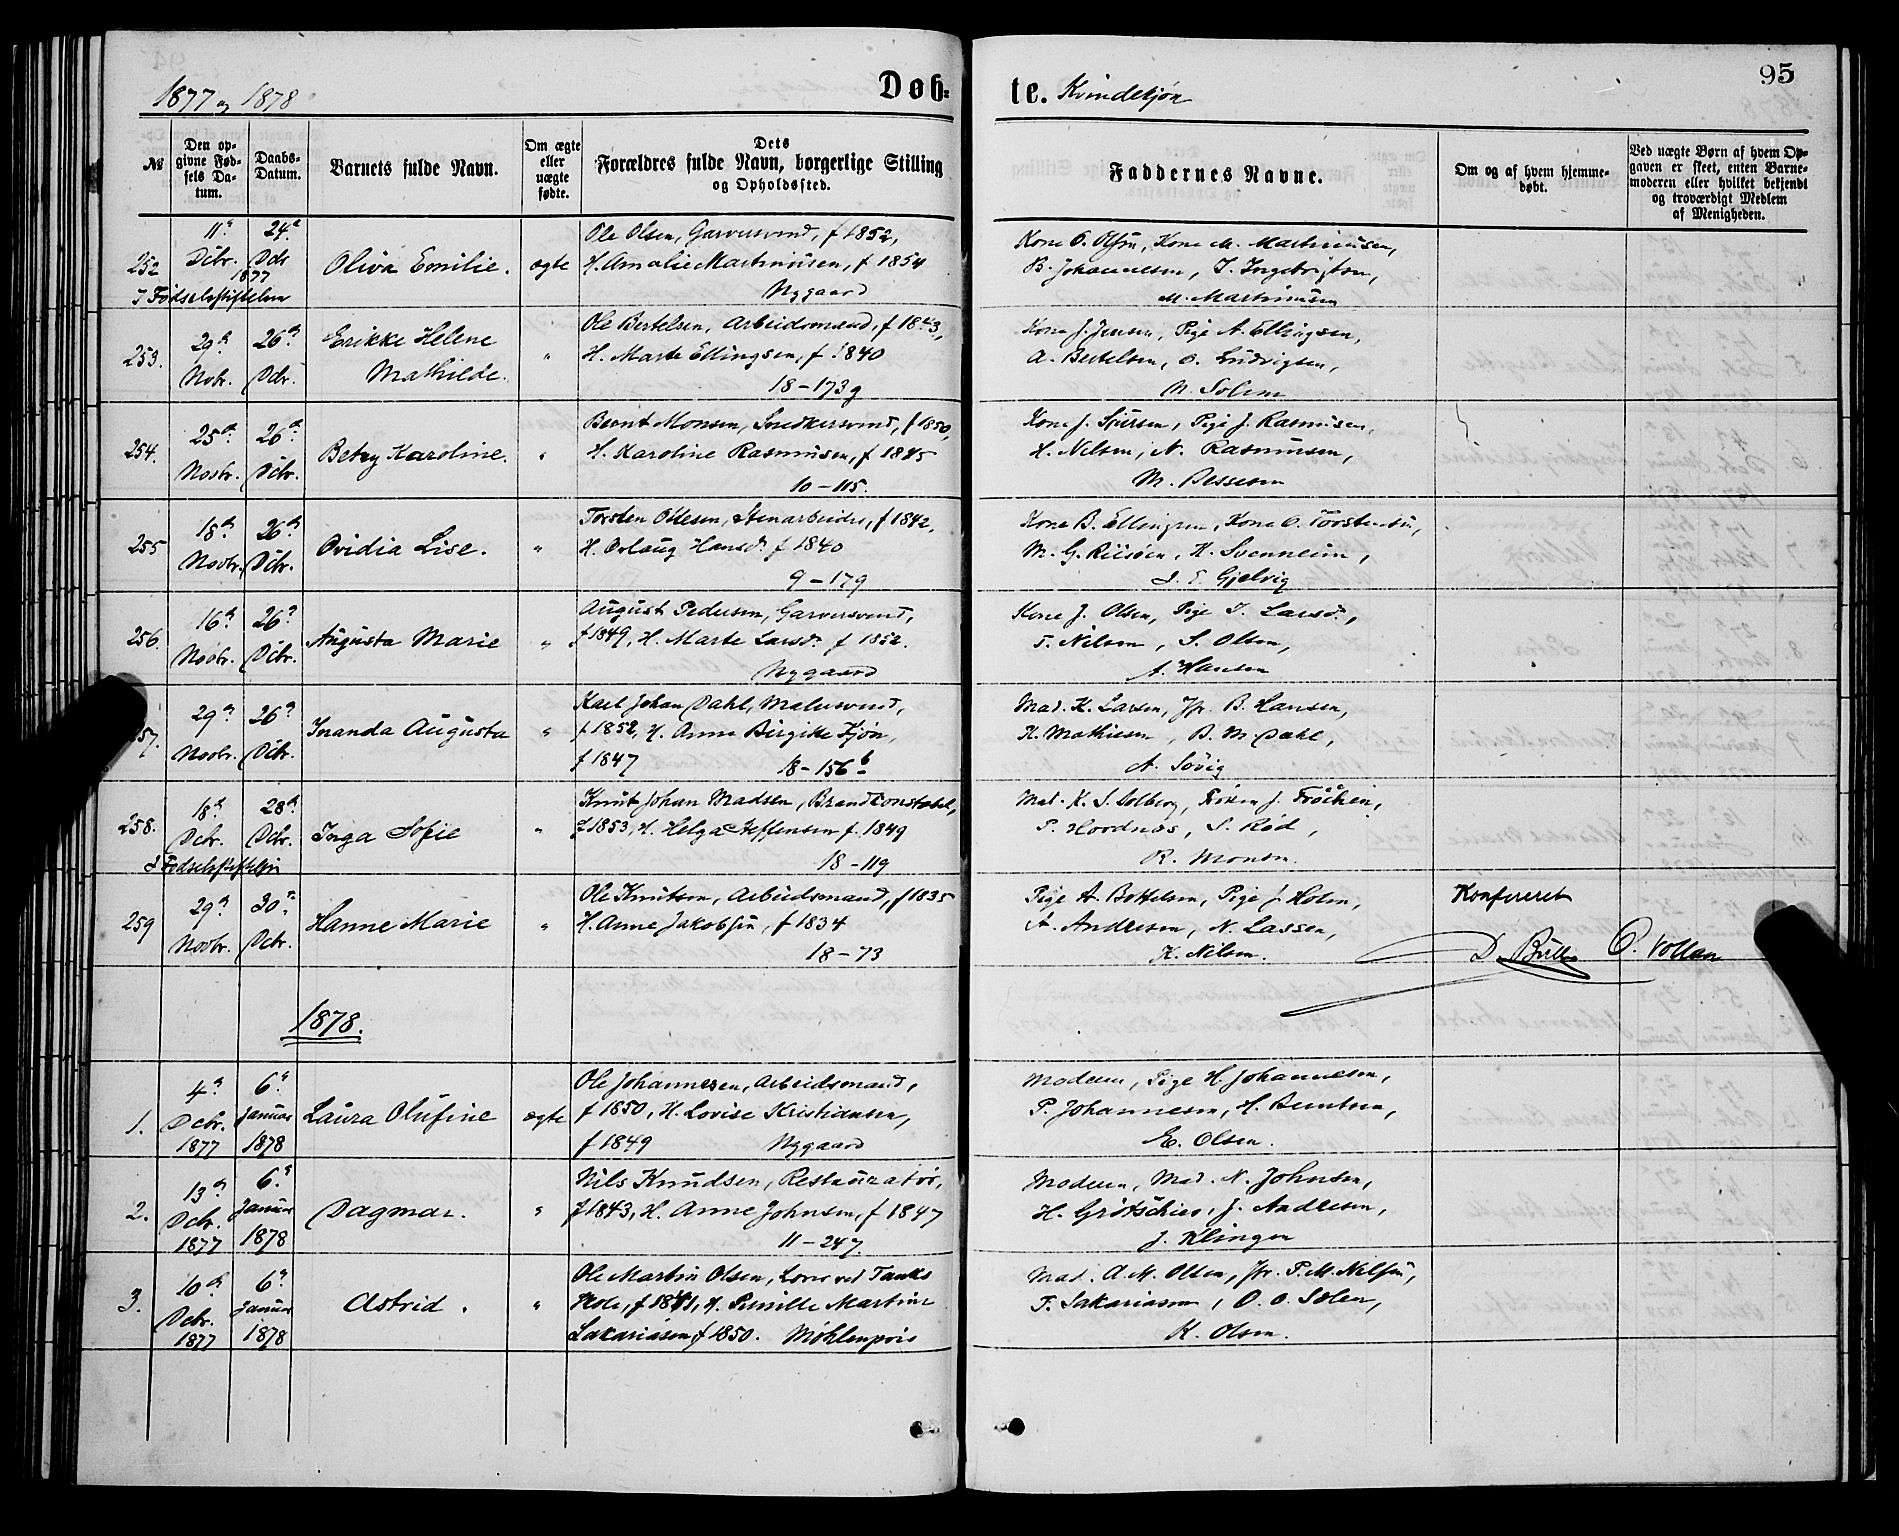 95
1877 og 1878
Døb-
te. Kvindekjøn
№
Den op-
givne Fød-
sels Da-
tum.
Daabs-
Datum.
Barnets fulde Navn.
Om ægte
eller
uægte
fødte.
Dets
Forældres fulde Navn, borgerlige Stilling
og Opholdssted.
Faddernes Navne.
Om og af hvem hjemme-
døbt.
Ved uægte Børn af hvem Op-
gaven er skeet, enten Barne-
moderen eller hvilket bekjendt
og troværdigt Medlem
af Menigheden.
252
11te Dcbr.
24de Dcbr 1877
I Fødselsstiftelsen
Oliva Emilie.
ægte
Ole Olsen, Garversvend, f 1852,
H. Amalie Martinusen, f 1854
Nygaard
Kone O. Olsen, Kone M. Martinusen,
B. Johannesen, I. Ingebrigtsen,
M. Martinusen
253.
29de Nobr.
26de Dcbr.
Erikke Helene
Mathilde.
"
Ole Bertelsen, Arbeidsmand, f 1843,
H. Marte Ellingsen, f 1840
18-173g
Kone J. Jensen, Pige A. Ellingsen,
A. Bertelsen, O. Ludvigsen,
N. Solem
254.
25de Novbr.
26de Dcbr.
Betzy Karoline.
"
Bernt Monsen, Snedkersvend, f 1850,
H. Karoline Rasmusen, f 1845
10-115.
Kone J. Sjursen, Pige J. Rasmusen,
H. Nelsen, N. Rasmusen,
M. Bessesen
255
18de Novbr.
26de Dcbr.
Ovidia Lise.
"
Torsten Ottesen, Stenarbeider, f 1842,
H. Oslaug Hansd. f 1840
9-179
Kone B. Ellingsen, Kone O. Torstensen,
M. G. Riisøen, K. Svenneim,
I. E. Gjelvig
256.
16de Novbr.
26de Dcbr.
Augusta Marie
"
August Pedersen, Garversvend,
f 1849, H. Marte Larsd. f 1852.
Nygaard
Kone J. Olsen, Pige I. Larsd.,
T. Nilsen, S. Olsen,
A. Hansen
257.
29de Novbr.
26de Dcbr.
Inanda Augusta
"
Karl Johan Dahl, Malersvend,
f 1852, H. Anne Birgitte Fjøn,
f 1847 18-156b
Mad. K. Larsen, Jfr. B. Hansen,
K. Mathiesen, B. M. Dahl,
A. Søvig
258.
18de Dcbr.
28de Dcbr.
I Fødselsstiftelsen
Inga Sofie
"
Knut Johan Madsen, Brandkonstabel,
f 1853, H. Helga Steffensen f. 1849
18-119
Mad. K. S. Solberg, Frøken J. Frøchen,
P. Hordnæs, S. Rød,
R. Monsen.
259
29de Novbr.
30te Dcbr.
Hanne Marie
"
Ole Knutsen, Arbeidsmand, f 1835
H. Anne Jakobsen, f 1834
18-73
Pige A. Bottelsen, Pige J. Holm,
A. Andresen, N. Lassen,
K. Nilsen.
Konfereret
D. Bull O. Vollan
1878.
1.
4de Dcbr. 1877
6te Januar 1878
Laura Olufine
ægte
Ole Johannesen, Arbeidsmand,
f 1850, H. Lovise Kristiansen,
f 1849 Nygaard
Moderen, Pige H. Johannesen,
P. Johannesen, H. Berntsen,
E. Olsen.
2.
13de Dcbr. 1877
6te Januar 1878
Dagmar.
"
Nils Knudsen, Restauratør,
f 1843, H. Anne Johnsen, f 1847
11-247.
Moderen, Mad. N. Johnsen,
H. Grötschier, J. Andresen,
J. Klingen
3.
10de Dcbr. 1877
6te Januar 1878
Astrid.
"
Ole Martin Olsen, Lærer ved Tanks
Skole, f 1841, H. Pernille Martine
Sakariasen, f 1850. Møhlenpris
Mad. A. M. Olsen, Jfr. P. M. Nilsen,
T. Sakariasen, O. O. Solen,
K. Olsen.